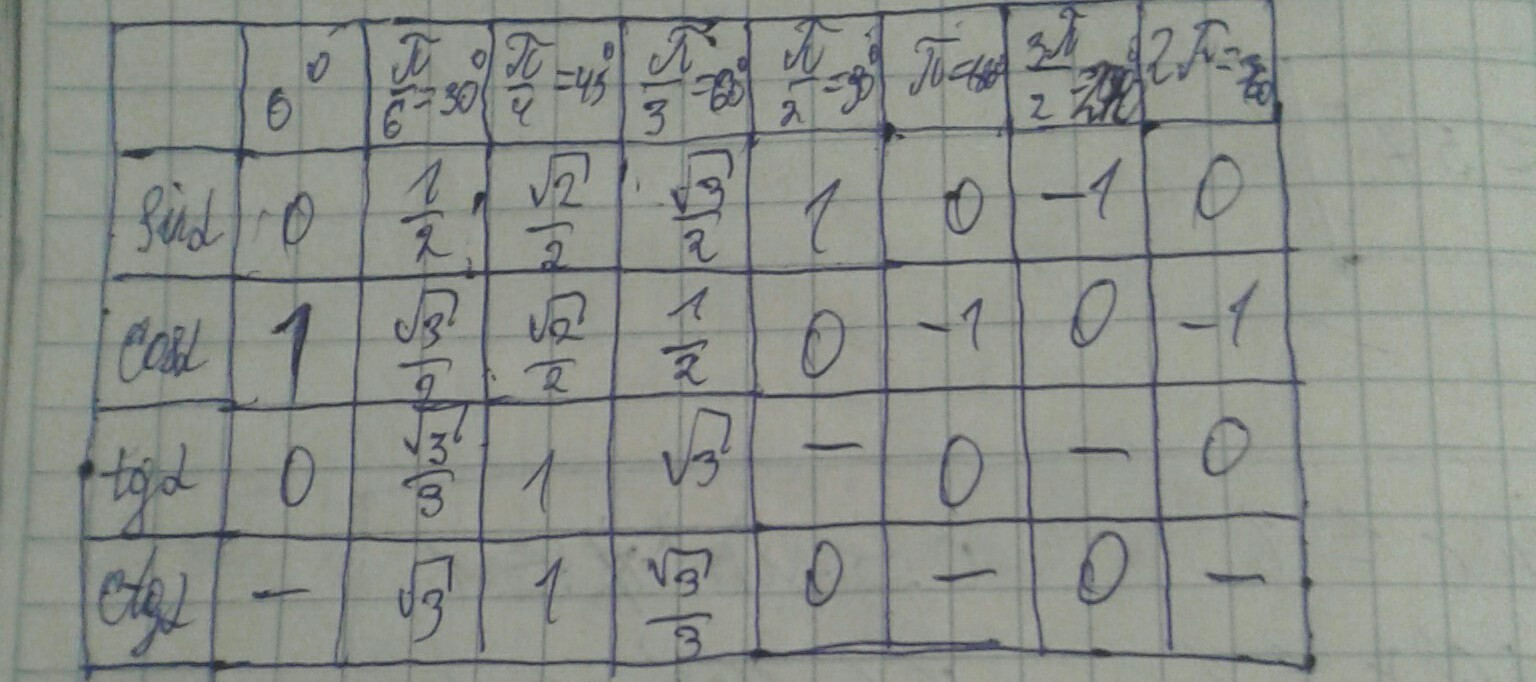 0° π/6=30° π/4=45° π/3=60° π/2=90° π=180° 3π/2=270° 2π=360
sinα 0 1/2 √2/2 √3/2 1 0 -1 0
cosα 1 √3/2 √2/2 1/2 0 -1 0 -1
tgα 0 √3/3 1 √3 — 0 — 0
ctgα — √3 1 √3/3 0 — 0 —